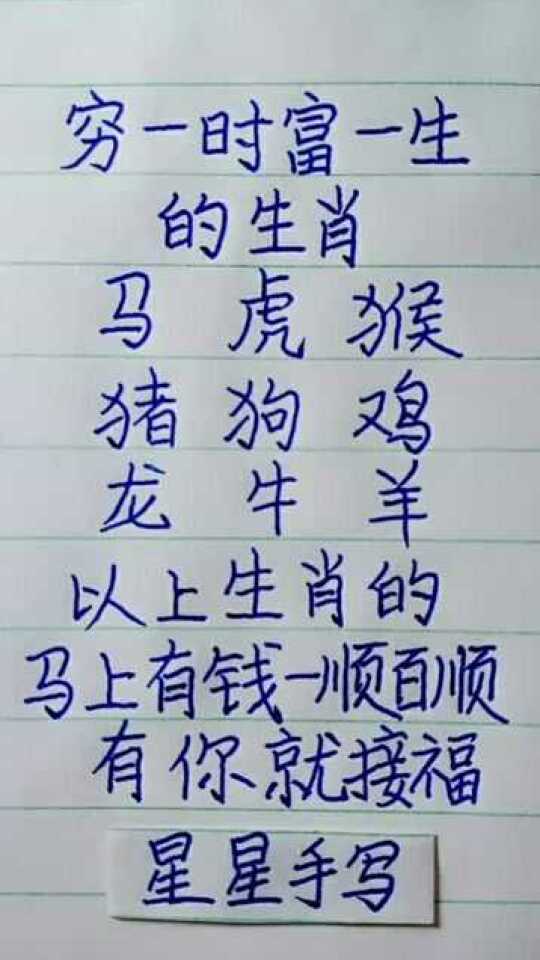 穷一时富一生
的生肖
马 虎 猴
猪 狗 鸡
龙 牛 羊
以上生肖的
马上有钱一顺百顺
有你就接福
星星手写